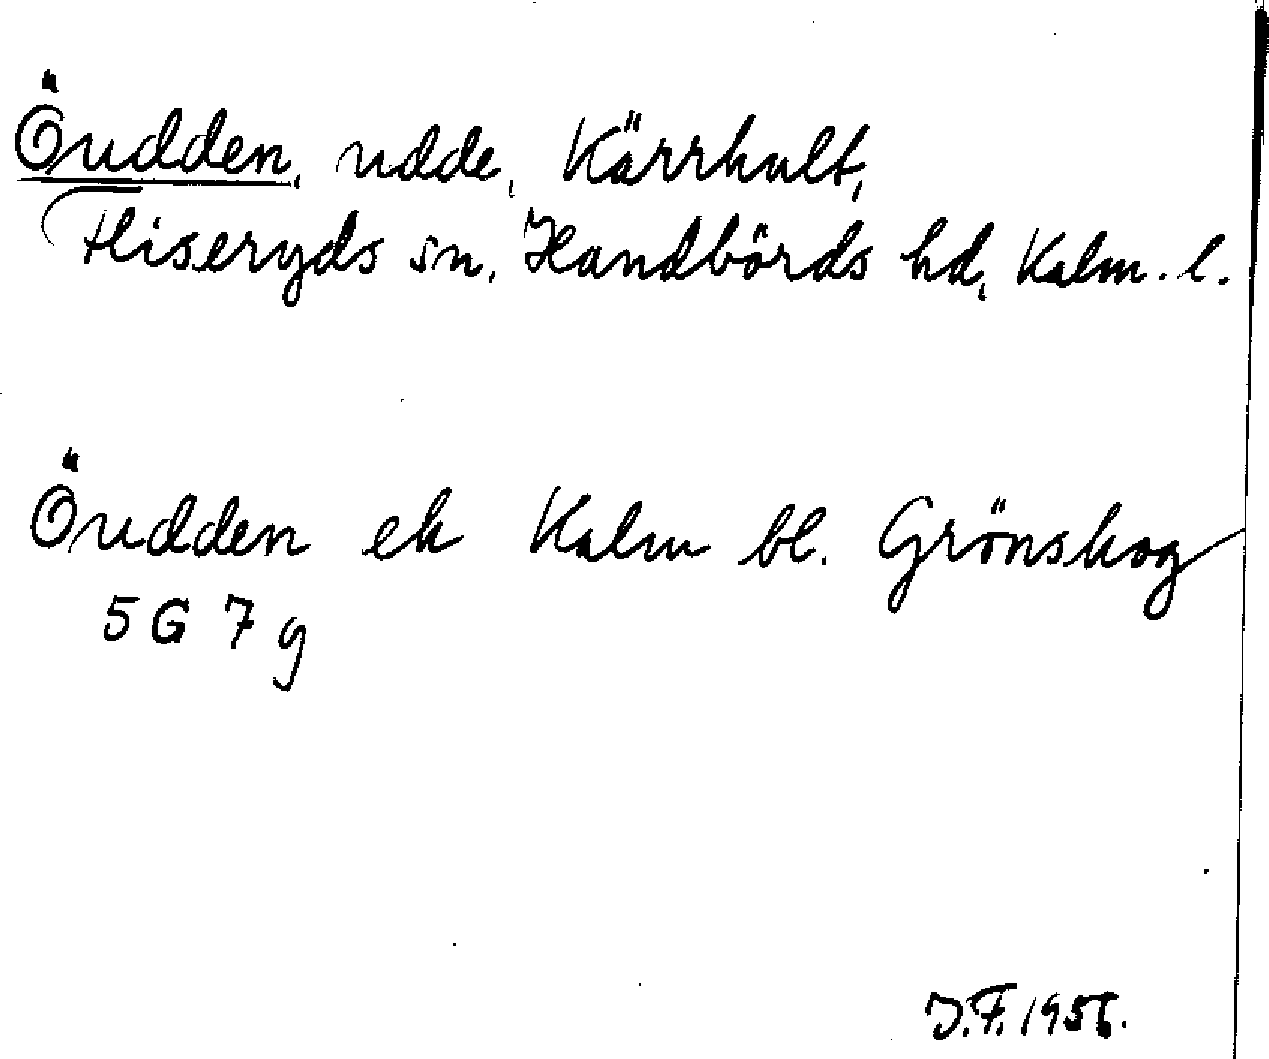 Öudden, udde, Kärrhult,
Fliseryds sn, Handbörds hd, Kalm. l.
Öudden ek Kalm bl. Grönskog
5 G 7 g
J.F. 1956.